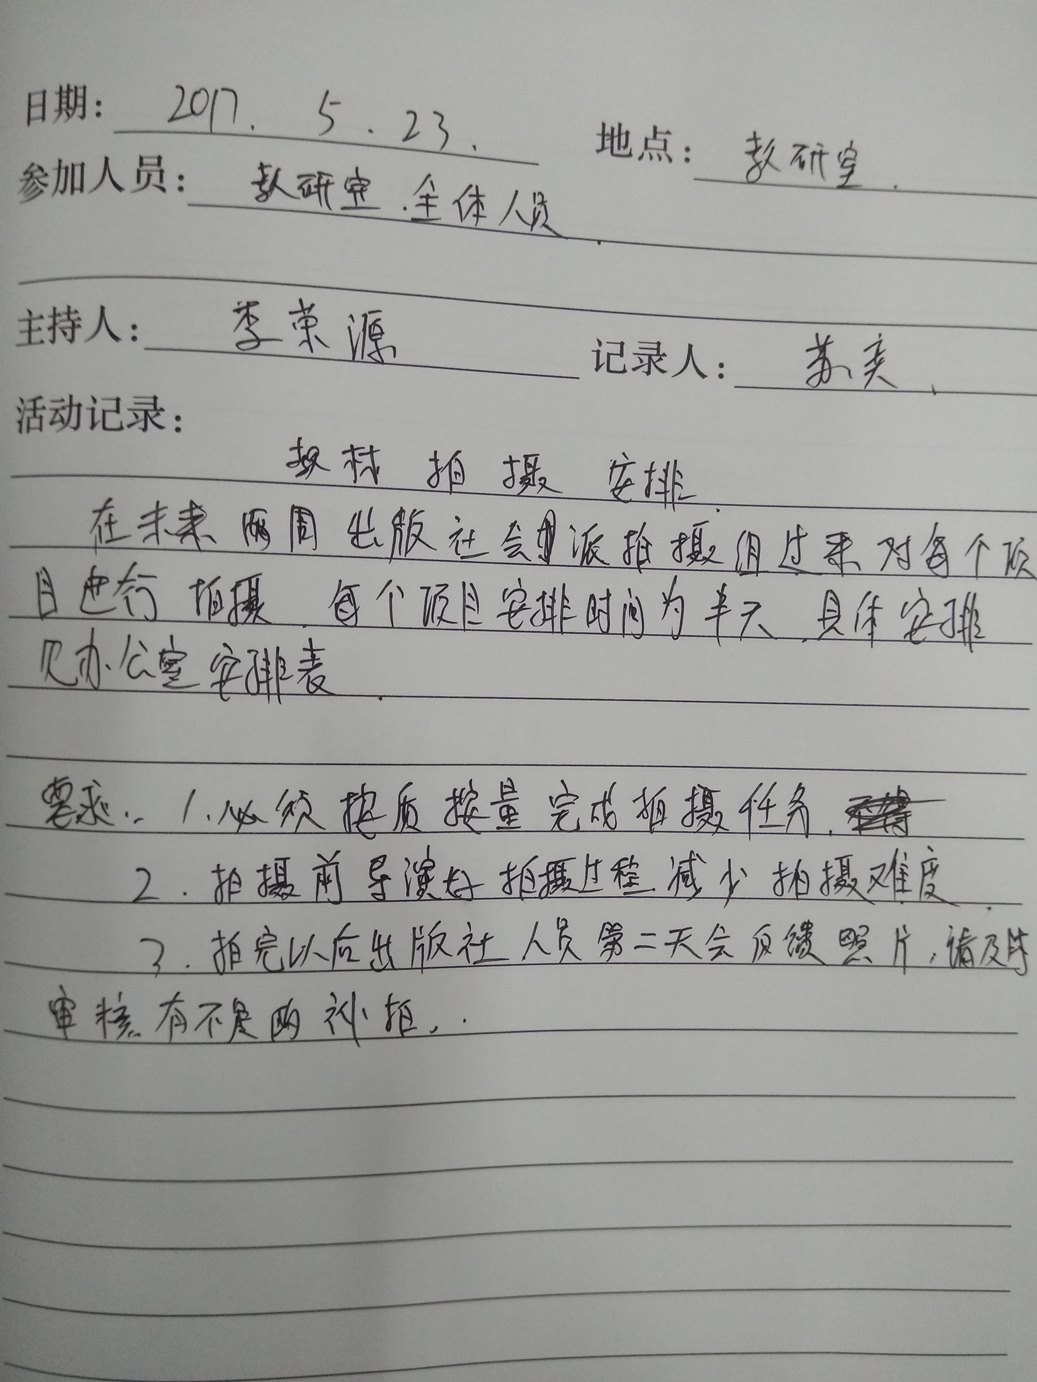 日期： 2017. 5. 23. 地点： 教研室.
参加人员： 教研室.全体人员.
主持人： 李荣源 记录人： 苏奕.
活动记录：
教材 拍 摄 安排.
在未来 两周 出版社会派拍摄组过来 对每个项
目进行 拍摄. 每个项目安排时间为半天.具体安排
见办公室安排表.
要求： 1.必须按质按量完成拍摄任务.
2.拍摄前导演好拍摄过程.减少拍摄难度.
3.拍完以后出版社人员第二天会反馈照片,请及时
审核.有不足的补拍.